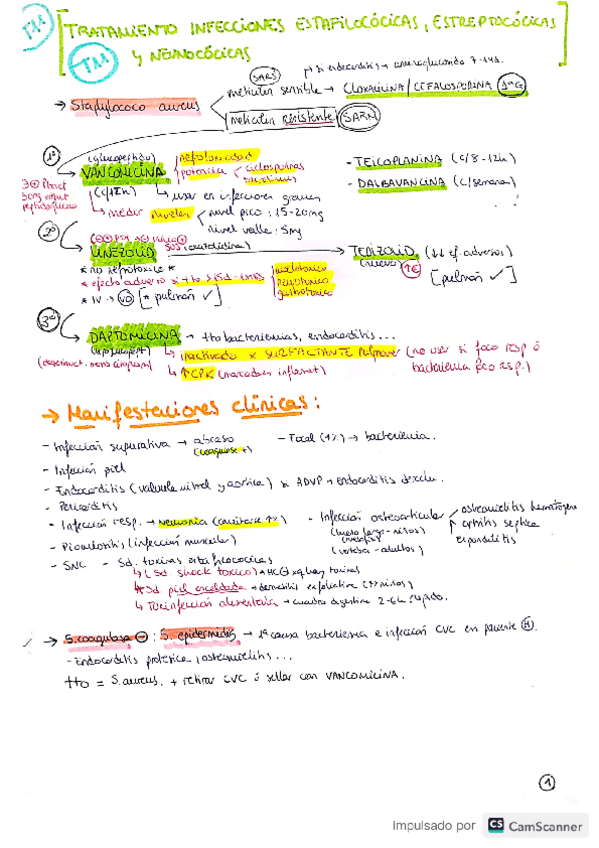 TRATAMIENTO INFECCIONES ESTAFILOCÓCICAS, ESTREPTOCÓCICAS
Y NEUMOCÓCICAS
SARS
si endocarditis → aminoglucosido 7-14d.
→ Staphylococo aureus
meticilin sensible → CLOXACILINA / CEFALOSPORINA 1ªG
meticilin resistente SARM
1º
(glucopéptido)
VANCOMICINA
nefrotoxicidad
potencia
ciclosporinas
(c/12h)
→ usar en infecciones graves
→ medir niveles
nivel pico: 15-20mg
nivel valle: 5mg
- TEICOPLANINA (c/8-12h)
- DALBAVANCINA (c/semana)
2º
LINEZOLID
→ TEDIZOLID (↓↓ ef. adversos)
(nuevo) ↑€
[pulmón ✓]
* no nefrotóxico *
* efecto adverso si tto >15d
* IV → VO [* pulmón ✓]
3º
DAPTOMICINA → tto bacteriemias, endocarditis...
(lipopept)
→ inactivado x SURFACTANTE Pulmonar (no usar si foco resp ó
bacteriemia foco resp.)
→ ↑CPK (marcador inflamat)
→ Manifestaciones clínicas:
- Infección supurativa → absceso
(coagulasa +)
- Focal (1%) → bacteriemia.
- Infección piel
- Endocarditis (válvula mitral y aórtica) x ADVP → endocarditis derecha.
- Pericarditis
- Infección resp. → neumonía
- Infección osteoarticular
osteomielitis hematógena
artritis séptica
espondilitis
(hueso largo - niños)
(vértebra - adultos)
- Piomiositis (infección muscular)
- SNC
- Sd. toxinas estafilocócicas
→ (Sd shock tóxico)
→ Sd piel escaldada → dermatitis exfoliativa
→ Toxiinfección alimentaria → cuadro digestivo 2-6h rápido.
→ S. coagulasa ⊖ : S. epidermidis → 1ª causa bacteriemia e infección CVC en paciente H.
- Endocarditis protésica, osteomielitis...
tto = S. aureus. + retirar CVC ó sellar con VANCOMICINA.
1
Impulsado por CS CamScanner